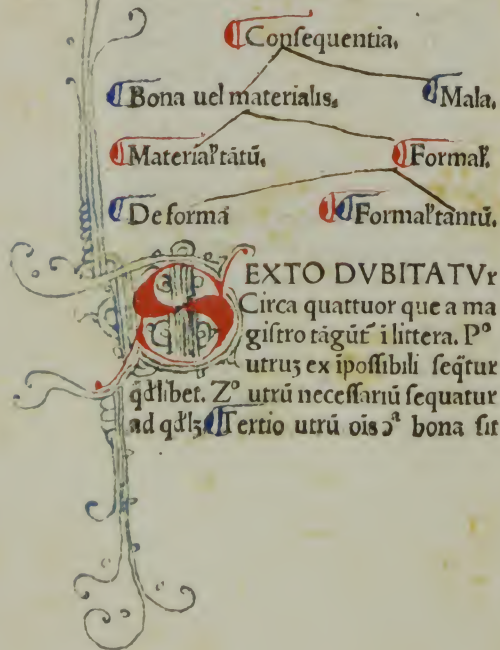 Conſequentia.
Bona uel materialis. Mala.
Materiał tātū. Formał.
De forma Formał tantū.
SEXTO DVBITATVr
Circa quattuor que a ma
giſtro tāgūt᷑ i littera. Pº
utruꝫ ex ipoſſibili ſeq̄tur
qđlibet. Zº utrū neceſſariū ſequatur
ad qđlꝫ Tertio utrū oīs ↄª bona ſit